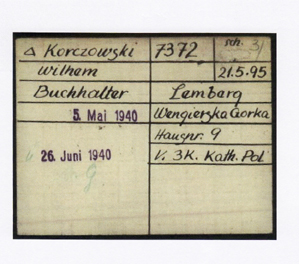 △ Korczowski 7372 sch. 31
Wilhem 21.5.95
Buchhalter Lemberg
5. Mai 1940 Wengierska Gorka
Hausnr. 9
26. Juni 1940 V. 3K. Kath. Pol
G